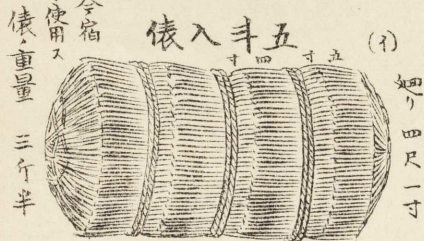 (イ)
廻リ 四尺一寸
五斗入俵
五寸四寸
今宿
使用ス
俵ノ重量 三斤半